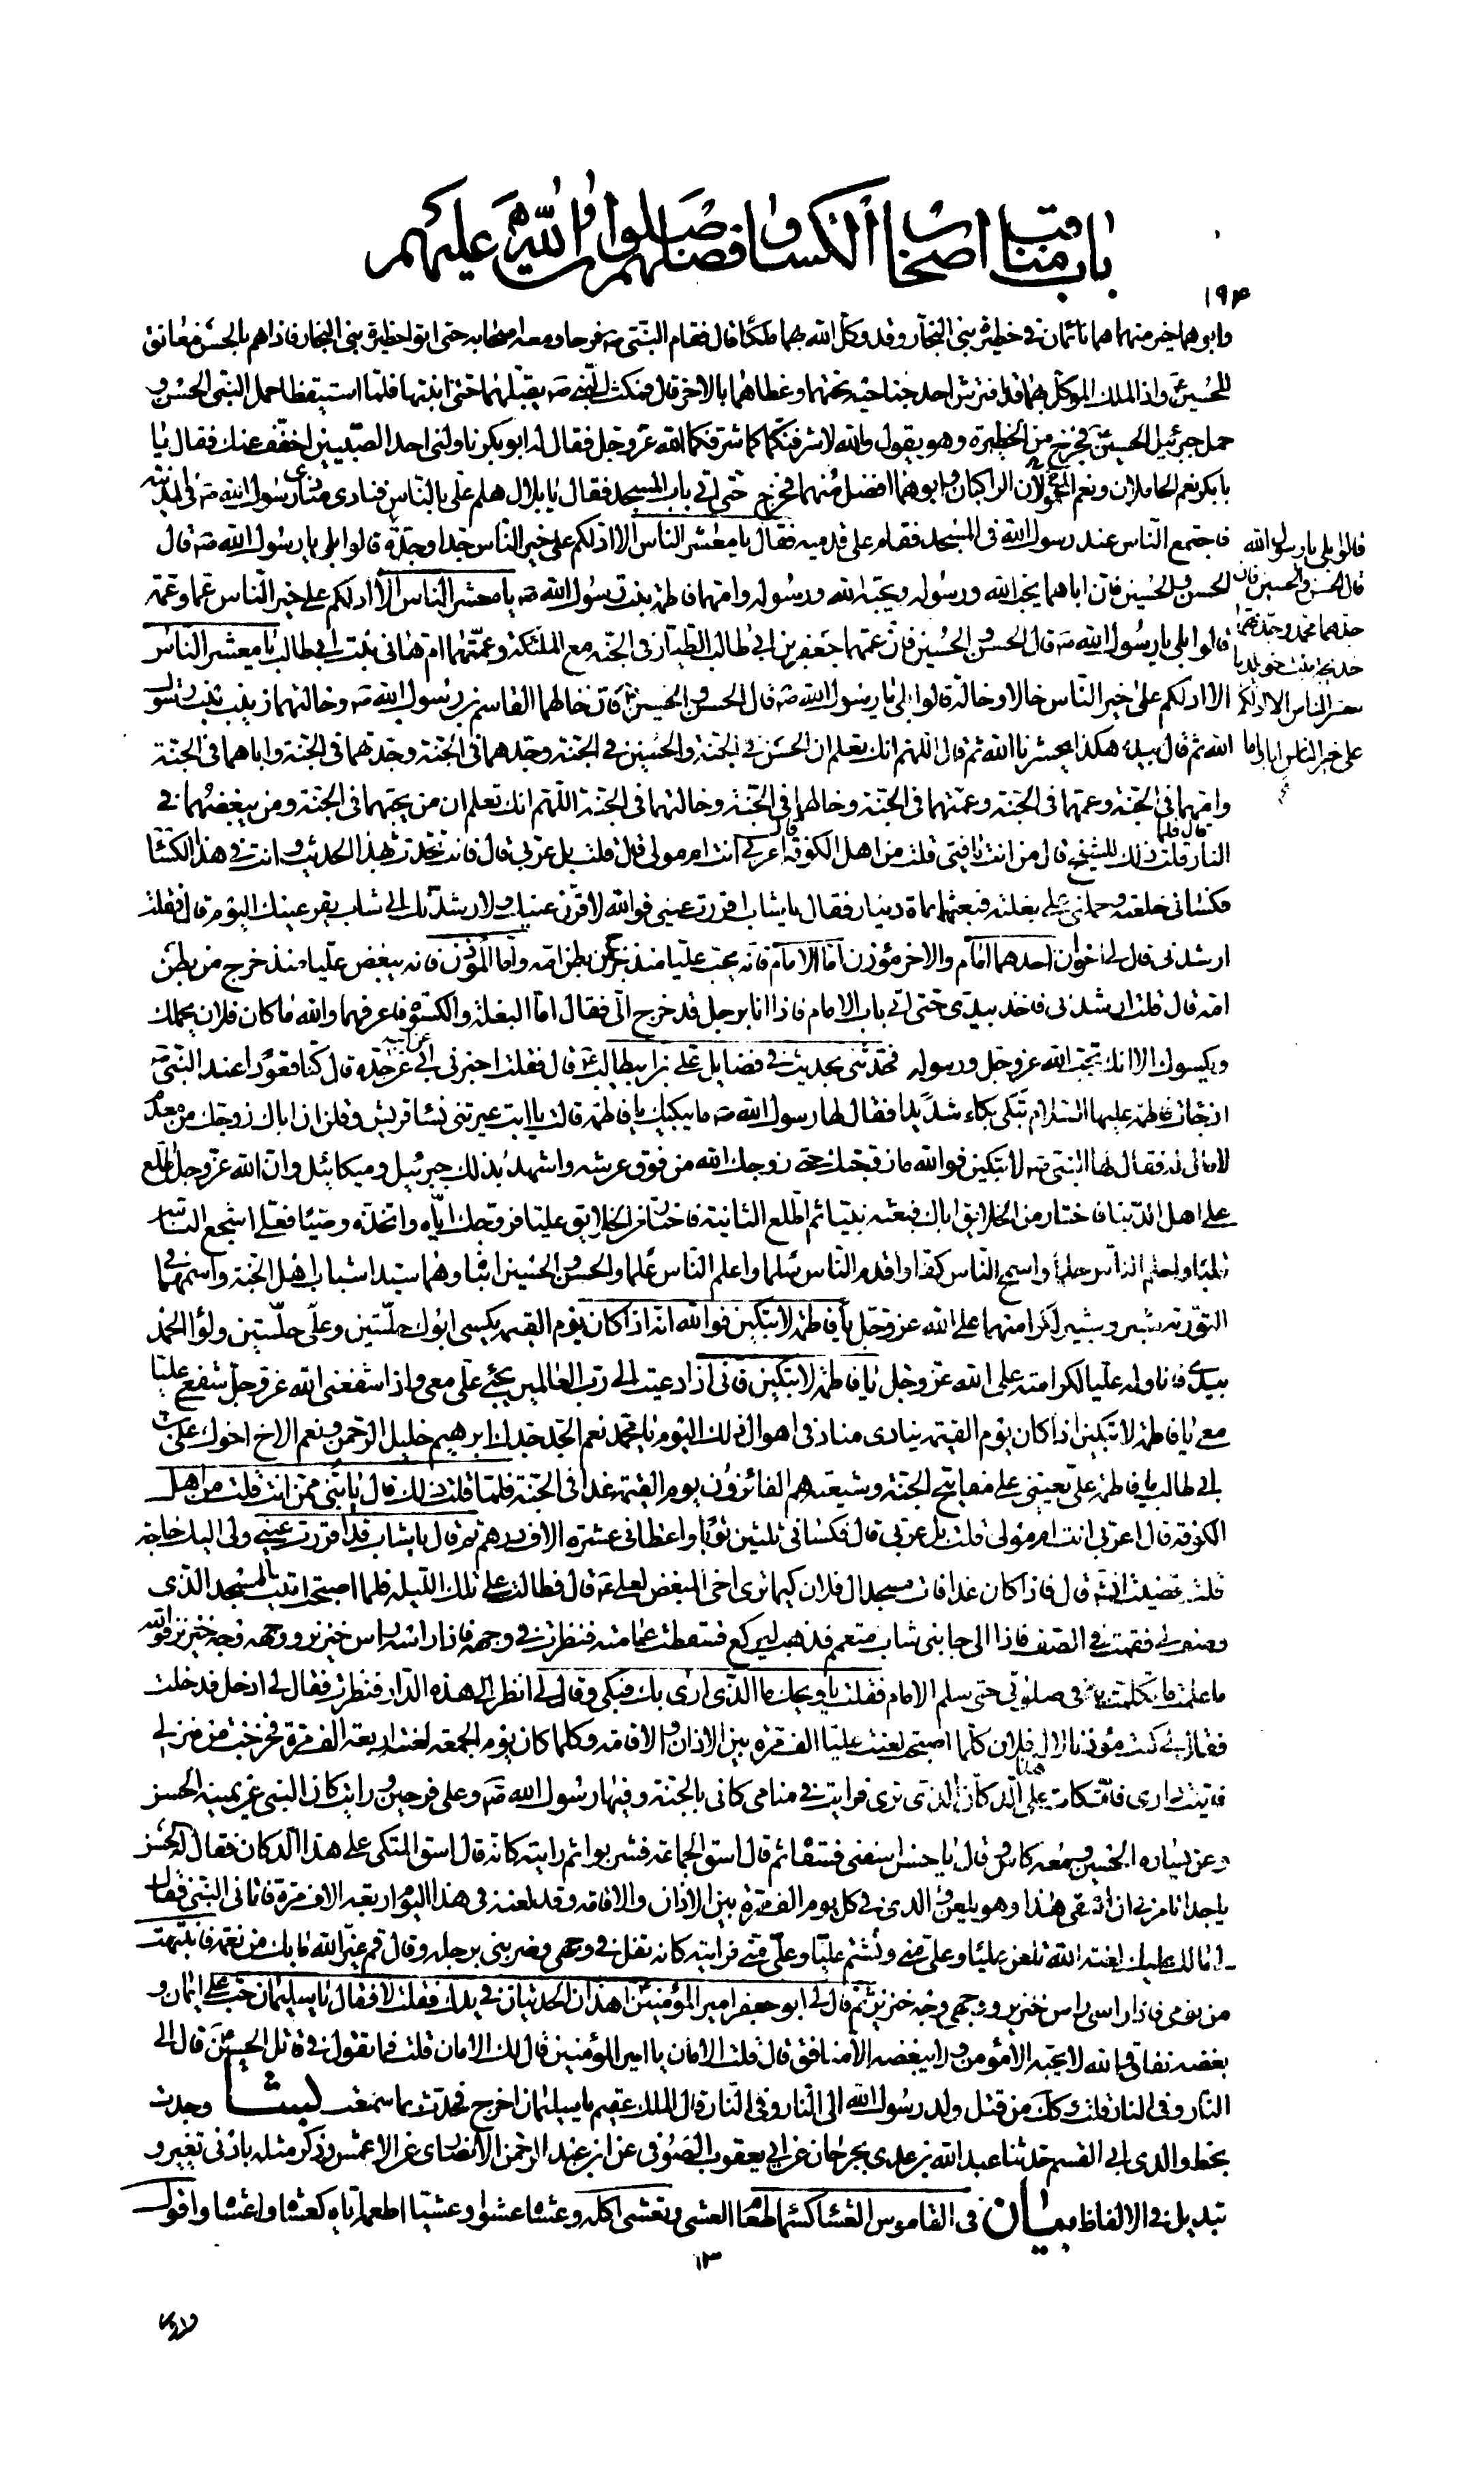 باب مناقب اصحاب الكساء وفضلهم صلوات الله عليهم
١٩٤
وابوهما خير منهما هما نائمان في حظيرة بني النجار وقد وكل الله بهما ملكا قال فقام النبي ص فرحا ومعه اصحابه حتى اتوا حظيرة بني النجار فاذا هم بالحسن معانق
للحسين واذا الملك الموكل بهما قد افترش احد جناحيه تحتهما وغطاهما بالاخر قال فمكث النبي ص يقبلهما حتى انتبها فلما استيقظا حمل النبي الحسن و
حمل جبرئيل الحسين فخرج من الحظيرة وهو يقول والله لاشرفنكما كما شرفكما الله عز وجل فقال له ابو بكر ناولني احد الصبيين اخفف عنك فقال يا
با بكر نعم الحاملان ونعم الراكبان وابوهما افضل منهما فخرج حتى اتى باب المسجد فقال يا بلال هلم علي بالناس فنادى منادي رسول الله ص في المدينة
فاجتمع الناس عند رسول الله في المسجد فقام على قدميه فقال يا معشر الناس الا ادلكم على خير الناس جدا وجدة قالوا بلى يا رسول الله ص قال
الحسن والحسين فان اباهما يحب الله ورسوله ويحبه الله ورسوله وامهما فاطمة بنت رسول الله ص يا معشر الناس الا ادلكم على خير الناس عما وعمة
قالوا بلى يا رسول الله ص قال الحسن والحسين فان عمهما جعفر بن ابي طالب الطيار في الجنة مع الملئكة وعمتهما ام هاني بنت ابي طالب يا معشر الناس
الا ادلكم على خير الناس خالا وخالة قالوا بلى يا رسول الله ص قال الحسن والحسين فان خالهما القاسم بن رسول الله ص وخالتهما زينب بنت رسول
الله ثم قال بيده هكذا يحشرنا الله ثم قال اللهم انك تعلم ان الحسن في الجنة والحسين في الجنة وجدهما في الجنة وجدتهما في الجنة واباهما في الجنة
وامهما في الجنة وعمهما في الجنة وعمتهما في الجنة وخالهما في الجنة وخالتهما في الجنة اللهم انك تعلم ان من يحبهما في الجنة ومن يبغضهما في
النار قال فلما قلت ذلك للشيخ قال من انت يا فتى قلت من اهل الكوفة قال اعربي انت ام مولى قال قلت بل عربي قال فانت تحدث بهذا الحديث وانت في هذا الكساء
فكساني خلعته وحملني على بغلته فبعتهما بماة دينار فقال يا شاب اقررت عيني فوالله لاقرن عينك ولارشدنك الى شاب يقر عينك اليوم قال فقلت
ارشدني قال لي اخوان احدهما امام والاخر مؤذن اما الامام فانه يحب عليا منذ خرج من بطن امه واما المؤذن فانه يبغض عليا منذ خرج من بطن
امه قال قلت ارشدني فاخذ بيدي حتى اتى باب الامام فاذا انا برجل قد خرج الي فقال اما البغلة والكسوة فاعرفهما والله ما كان فلان يحملك
ويكسوك الا انك تحب الله عز وجل ورسوله فحدثني بحديث في فضايل علي بن ابيطالب ع قال فقلت اخبرني ابي عن ابيه عن جده قال كنا قعودا عند النبي ص
اذ جائت فاطمة عليها السلام تبكي بكاء شديدا فقال لها رسول الله ص ما يبكيك يا فاطمة قالت يا ابت عيرتني نساء قريش وقلن ان اباك زوجك من معدم
لا مال له فقال لها النبي ص لا تبكين فوالله ما زوجتك حتى زوجك الله من فوق عرشه واشهد بذلك جبرئيل وميكائيل وان الله عز وجل اطلع
على اهل الدنيا فاختار من الخلايق اباك فبعثه نبيا ثم اطلع الثانية فاختار من الخلايق عليا فزوجك اياه واتخذه وصيا فعلي اشجع الناس
قلبا واحلم الناس حلما واسمح الناس كفا واقدم الناس سلما واعلم الناس علما والحسن والحسين ابناه وهما سيدا شباب اهل الجنة واسمهما في
التورية شبر وشبير لكرامتهما على الله عز وجل يا فاطمة لا تبكين فوالله انه اذا كان يوم القيمة يكسى ابوك حلتين وعلي حلتين ولواء الحمد
بيدي فاناوله عليا لكرامته على الله عز وجل يا فاطمة لا تبكين فاني اذا دعيت الى رب العالمين يجئ علي معي واذا شفعني الله عز وجل شفع عليا
معي يا فاطمة لا تبكين اذا كان يوم القيمة ينادي مناد في اهوال ذلك اليوم يا محمد نعم الجد جدك ابرهيم خليل الرحمن ونعم الاخ اخوك علي بن
ابي طالب يا فاطمة علي يعينني على مفاتيح الجنة وشيعته هم الفائزون يوم القيمة غدا في الجنة فلما قلت ذلك قال يا بني ممن انت قلت من اهل
الكوفة قال اعربي انت ام مولى قلت بل عربي قال فكساني ثلثين ثوبا واعطاني عشرة الاف درهم ثم قال يا شاب قد اقررت عيني ولي اليك حاجة
قلت قضيت انشاء الله قال فاذا كان غدا فات مسجد ال فلان كيما ترى اخي المبغض لعلي ع قال فطالت علي تلك الليلة فلما اصبحت اتيت المسجد الذي
وصف لي فقمت في الصف فاذا الى جانبي شاب متعمم فذهب ليركع فسقطت عمامته فنظرت في وجهه فاذا راسه راس خنزير ووجهه وجه خنزير فوالله
ما علمت ما تكلمت به في صلوتي حتى سلم الامام فقلت يا ويحك ما الذي ارى بك فبكى وقال لي انظر الى هذه الدار فنظرت فقال لي ادخل فدخلت
فقال لي كنت مؤذنا لال فلان كلما اصبحت لعنت عليا الف مرة بين الاذان والاقامة وكلما كان يوم الجمعة لعنته اربعة الف مرة فخرجت من منزلي
فاتيت داري فاتكات على هذا الدكان الذي ترى فرايت في منامي كاني بالجنة وفيها رسول الله ص وعلي فرحين ورايت كان النبي عن يمينه الحسن
وعن يساره الحسين ومعه كاس فقال يا حسن اسقني فسقاه ثم قال اسق الجماعة فشربوا ثم رايته كانه قال اسق المتكي على هذا الدكان فقال له الحسن
يا جد اتامرني ان اسقي هذا وهو يلعن والدي في كل يوم الف مرة بين الاذان والاقامة وقد لعنه في هذا اليوم اربعة الاف مرة فاتاني النبي فقال
لي ما لك عليك لعنة الله تلعن عليا وعلي مني وتشتم عليا وعلي مني فرايته كانه تفل في وجهي وضربني برجله وقال قم غير الله ما بك من نعمة فانتبهت
من نومي فاذا راسي راس خنزير ووجهي وجه خنزير ثم قال لي ابو جعفر امير المؤمنين اهذان الحديثان في يدك فقلت لا فقال يا سليمان حب علي ايمان و
بغضه نفاق والله لا يحبه الا مؤمن ولا يبغضه الا منافق قال قلت الامان يا امير المؤمنين قال لك الامان قلت فما تقول في قاتل الحسين ع قال الى
النار وفي النار قلت وكل من قتل ولد رسول الله الى النار وفي النار قال الملك عقيم يا سليمان اخرج فحدث بما سمعت وجدت
بخط والدي ابي القسم حدثنا عبد الله بن عدي بجرجان عن ابي يعقوب الصوفي عن ابن عبد الرحمن الانصاري عن الاعمش وذكر مثله بادنى تغيير و
تبديل في الالفاظ بيان في القاموس العشاء كسماء طعام العشي وتعشى اكله وعشاه عشوا وعشيا اطعمه اياه كعشاه واعشاه واقول
١٣
قالوا بلى يا رسول الله
قال الحسن والحسين فان
جدهما محمد وجدتهما
خديجة بنت خويلد يا
معشر الناس الا ادلكم
على خير الناس ابا واما